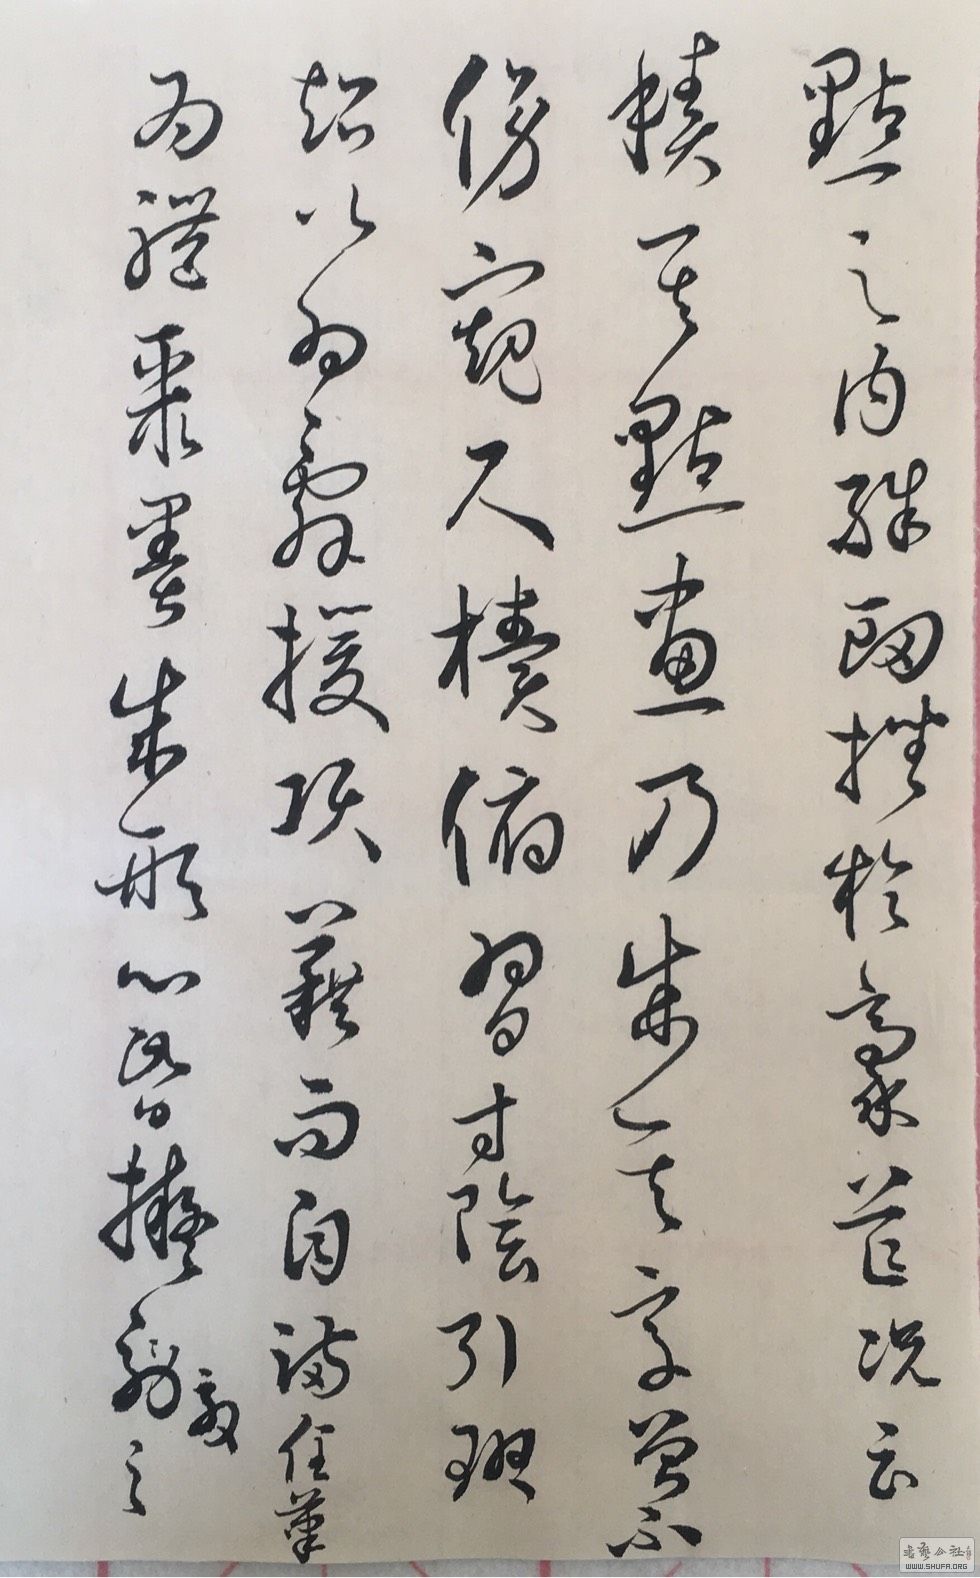 點之內殊衂挫於豪芒況云
積其點畫乃成其字曾不
傍窺尺櫝俯習寸陰引班
超以為辭援項籍而自滿任筆
為體聚墨成形心昏擬效之
書藝公社
WWW.SHUFA.ORG